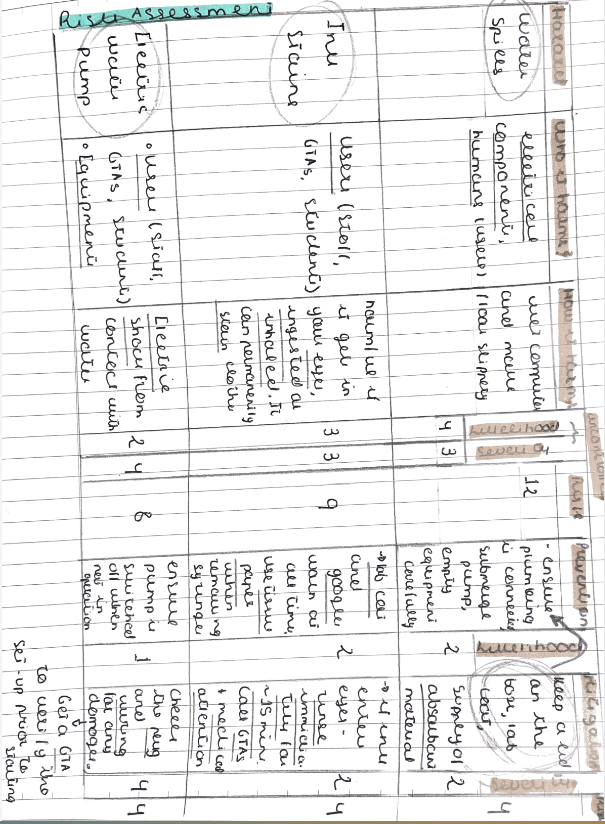 Risk Assessment
Hazard
Who is harmed
How is
uncontrolled
likelihood
severity
Risk
Prevention
likelihood
Mitigation
severity
Water
spills
electrical
component,
humans (users)
wet computer
and make
floor slippery
4
3
12
- ensure
plumbing
is connected
submerge
pump,
empty
equipment
carefully
2
keep a lid
on the
box, lab
coat,
supply of
absorbant
material
2
4
Ink
staine
users (staff,
GTAs, students)
harmful if
it gets in
your eyes,
ingested or
inhaled. It
can permanently
stain clothes
3
3
9
→ lab coat
and
googles
worn at
all time,
use tissue
paper
when
removing
syringe
2
→ if ink
enters
eyes -
rinse
immediate
fully for
~15 min.
Call GTAs
+ medical
attention
2
4
Electric
water
pump
• users (staff,
GTAs, students)
• Equipment
Electric
shock from
contact with
water
2
4
8
ensure
pump is
switched
off when
not in
operation
1
check
the plug
and
wiring
for any
damages.
Get a GTA
to verify the
set-up prior to
starting
4
4